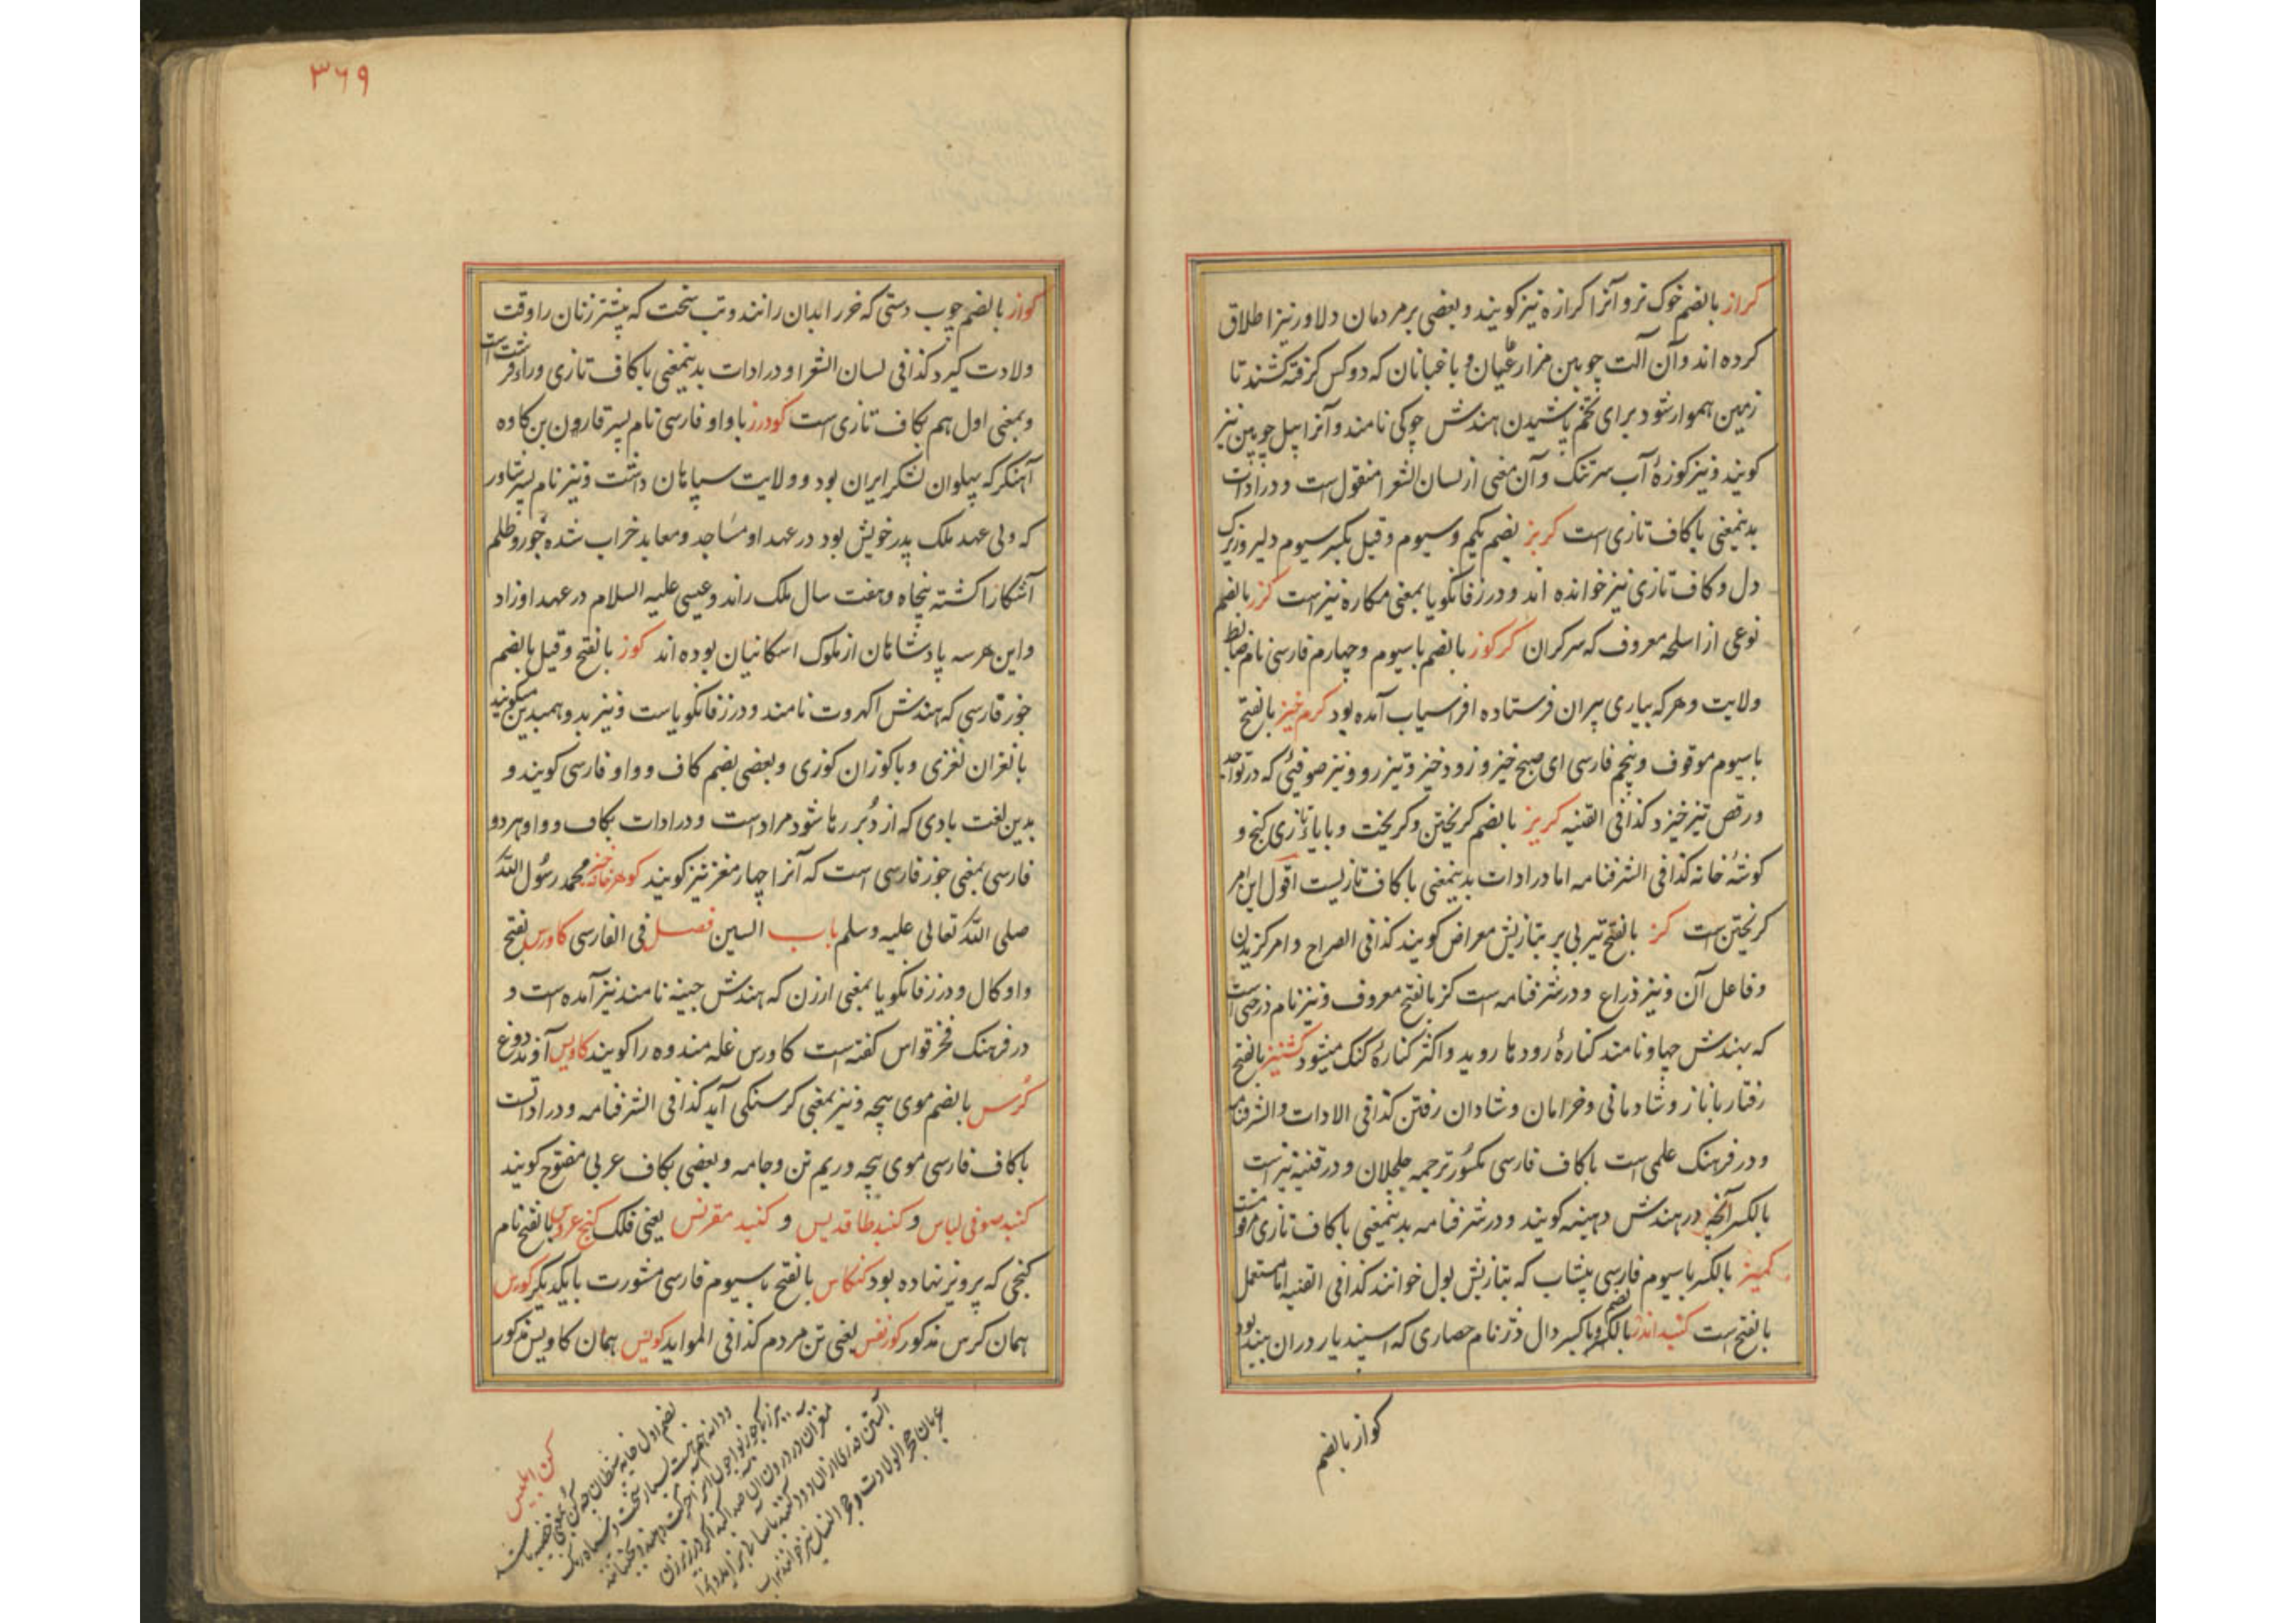 ۳۶۹
کراز بالضم خوک نر و آنرا کرازه نیز کویند و بعضی بر مردمان دلاور نیز اطلاق
کرده اند و آن آلت چوبین مزارعیان و باغبانان که دو کس کرفته کشند تا
زمین هموار شود برای تخم پاشیدن هندش چوکی نامند و آنرا بیل چوبین نیز
کویند و نیز کوزهٔ آب سرتنک و آن معنی از لسان الشعرا منقول است و در ادات
بدینمعنی با کاف تازی است کربز بضم یکم و سیوم و قیل بکسر سیوم دلیر و زیرک
دل و کاف تازی نیز خوانده اند و در زفانکویا بمعنی مکاره نیز است کرز بالضم
نوعی از اسلحه معروف که سرکران کرکوز بالضم با سیوم و چهارم فارسی نام ضابط
ولایت و هر که بیاری پیران فرستاده افراسیاب آمده بود کرم خیز بالفتح
با سیوم موقوف و پنجم فارسی ای صبح خیز و زود خیز و تیز رو و نیز صوفیٔ که در تواجد
و رقص تیز خیزد کذا فی القنیه کریز بالضم کریختن و کریخت و با یاء تازی کنج و
کوشهٔ خانه کذا فی الشرفنامه اما در ادات بدینمعنی با کاف تازیست اقول این امر
کریختن است کز بالفتح تیر بی پر بتازیش معراض کویند کذا فی الصراح و امر کزیدن
و فاعل آن و نیز ذراع و در شرفنامه است کز بالفتح معروف و نیز نام درختی است
که بهندش جهاو نامند کنارهٔ رودها روید و اکثر کنارهٔ کنک میشود کشنیز بالفتح
رفتار با ناز و شادمانی و خرامان و شادان رفتن کذا فی الادات و الشرفنامه
و در فرهنک علمی است با کاف فارسی مکسور ترجمه جلجلان و در قنیه نیز است
بالکسر آنچه در هندش دهینه کویند و در شرفنامه بدینمعنی با کاف تازی مرقوم است
کمیز بالکسر با سیوم فارسی پیشاب که بتازیش بول خوانند کذا فی القنیه اما مستعمل
بالفتح است کنبد اندژ بالضم و با کسر دال دژ نام حصاری که اسپندیار در ان ببند بود
کواز بالضم
کواز بالضم چوب دستی که خر را بدان رانند و تب سخت که بیشتر زنان را وقت
ولادت کیرد کذا فی لسان الشعرا و در ادات بدینمعنی با کاف تازی و راء قرشت است
و بمعنی اول هم بکاف تازی است کودرز با واو فارسی نام پسر قارون بن کاوه
آهنکر که پهلوان لشکر ایران بود و ولایت سپاهان داشت و نیز نام پسر شاور
که ولی عهد ملک پدر خویش بود در عهد او مساجد و معابد خراب شده جور و ظلم
آشکارا کشته پنجاه و هفت سال ملک راند و عیسی علیه السلام در عهد او زاد
و این هر سه پادشاهان از ملوک اسکانیان بوده اند کوز بالفتح و قیل بالضم
جوز فارسی که هندش اکهروت نامند و در زفانکویاست و نیز بد و همبدین میکویند
با نغزان نغزی و با کوزان کوزی و بعضی بضم کاف و واو فارسی کویند و
بدین لغت بادی که از دُبر رها شود مراد است و در ادات بکاف و واو هردو
فارسی بمعنی جوز فارسی است که آنرا چهار مغز نیز کویند کوهر خانه خیز محمد رسُول الله
صلی الله تعالی علیه و سلم باب السین فصل فی الفارسی کاورس بفتح
واو کال و در زفانکویا بمعنی ارزن که هندش جینه نامند نیز آمده است و
در فرهنک فخر قواس کفته است کاورس غله مندوه را کویند کاویس آوند دوغ
کُرس بالضم موی پیچه و نیز بمعنی کرسنکی آید کذا فی الشرفنامه و در ادات است
با کاف فارسی موی پیچه و ریم تن و جامه و بعضی بکاف عربی مفتوح کویند
کنبد صوفی لباس و کنبد طاقدیس و کنبد مقرنس یعنی فلک کنج عروس بالفتح نام
کنجی که پرویز نهاده بود کنکاس بالفتح با سیوم فارسی مشورت با یکدیکر کورس
همان کرس مذکور کوز نفس یعنی تن مردم کذا فی المواید کویس همان کاویس مذکور
کن ابلیس
بضم اول خایه شیطان چه کن بمعنی خصیه باشد